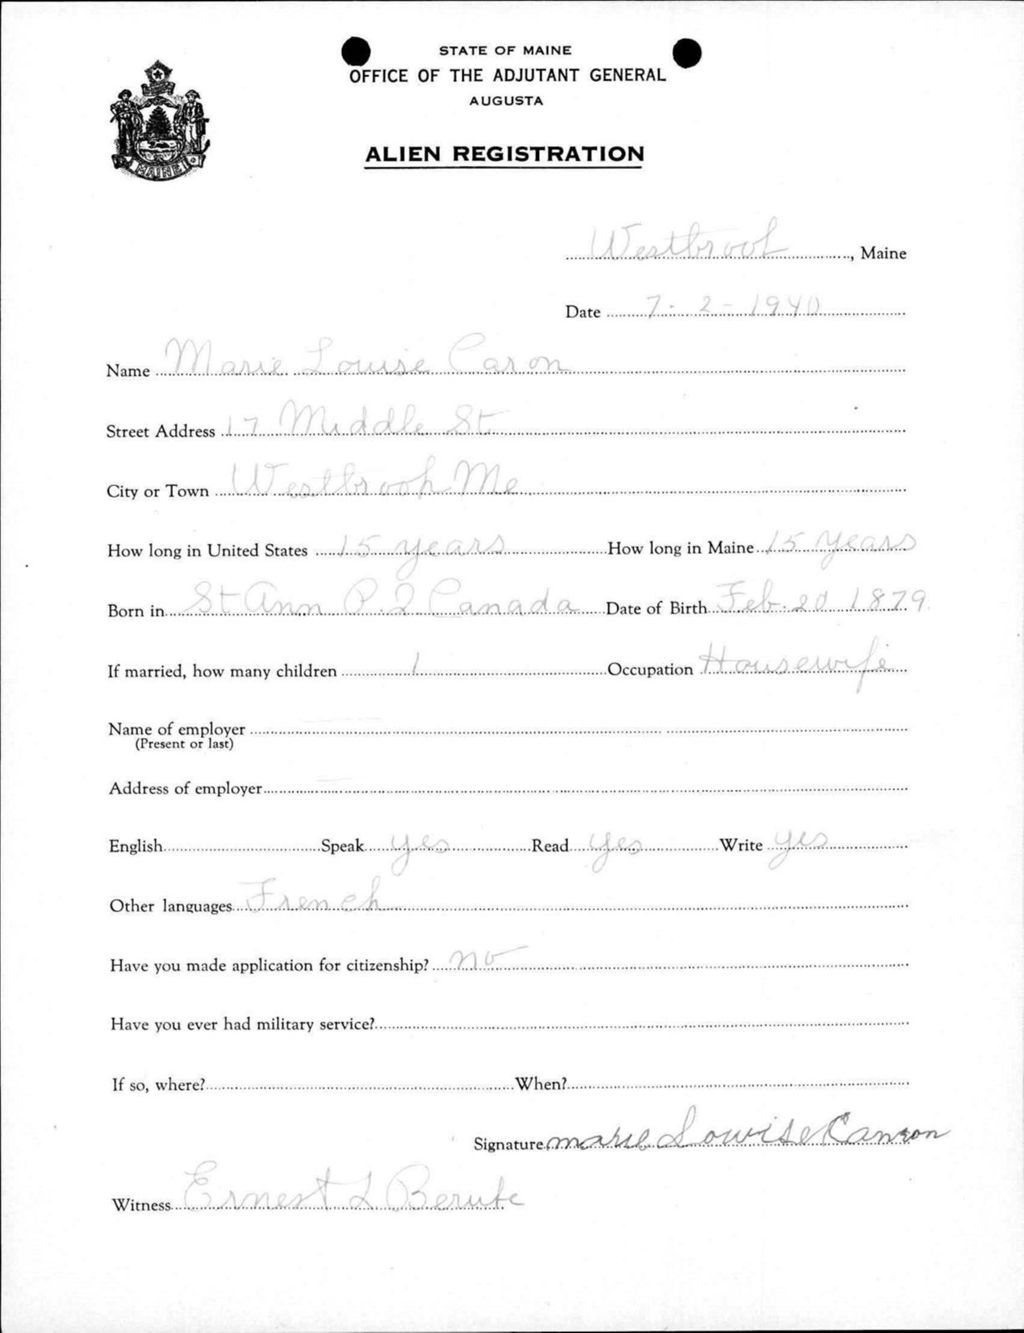 STATE OF MAINE
OFFICE OF THE ADJUTANT GENERAL
AUGUSTA
ALIEN REGISTRATION
MAINE
Westbrook, Maine
Date 7-2-1940
Name Marie Louise Caron
Street Address 17 Middle St
City or Town Westbrook Me
How long in United States 15 years How long in Maine 15 years
Born in St Ann P.Q Canada Date of Birth Feb. 20 1879
If married, how many children 1 Occupation Housewife
Name of employer
(Present or last)
Address of employer
English Speak yes Read yes Write yes
Other languages French
Have you made application for citizenship? no
Have you ever had military service?
If so, where? When?
Signature marie Louise Canron
Witness Ernest L Berube